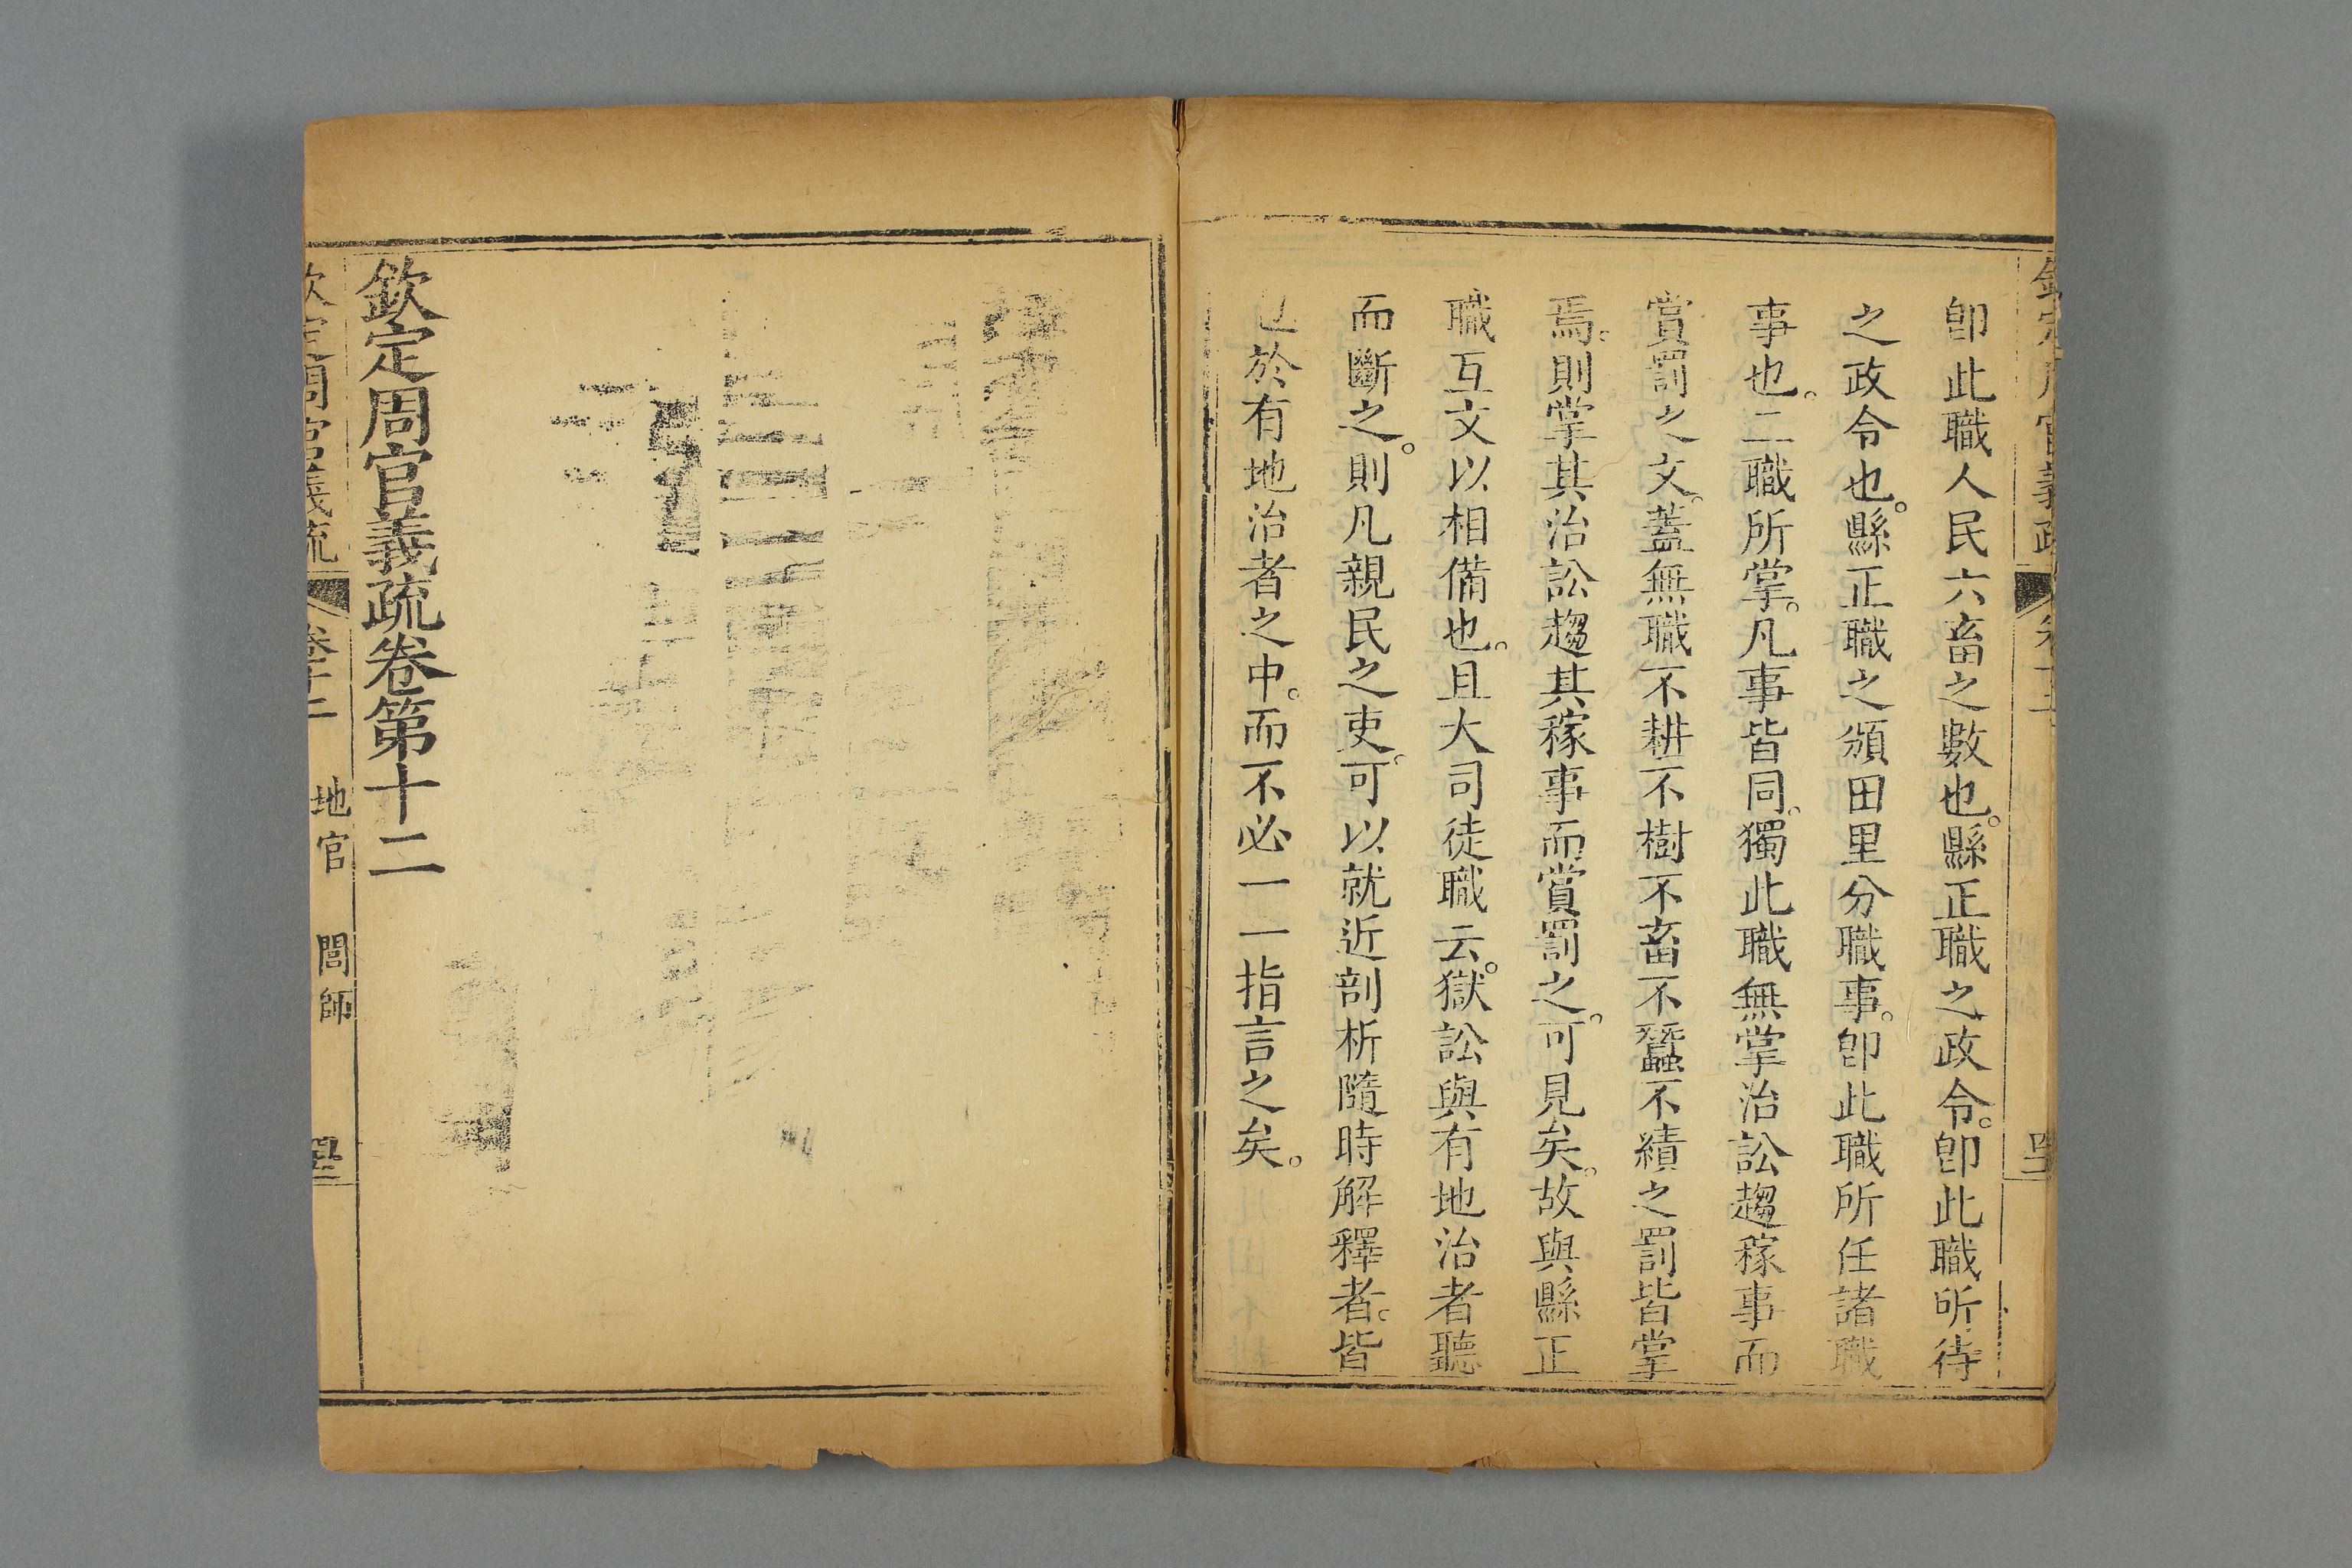 卽此職人民六畜之數也。縣正職之政令。卽此職所待
之政令也。縣正職之頒田里分職事。卽此職所任諸職
事也。二職所掌。凡事皆同。獨此職無掌治訟趨稼事而
賞罰之文。蓋無職不耕不樹不畜不蠶不績之罰皆掌
焉。則掌其治訟趨其稼事而賞罰之。可見矣。故與縣正
職互文以相備也。且大司徒職云。獄訟與有地治者聽
而斷之。則凡親民之吏。可以就近剖析隨時解釋者。皆
包於有地治者之中。而不必一一指言之矣。
欽定周官義疏卷第十二
欽定周官義疏 卷十二 地官 閭師